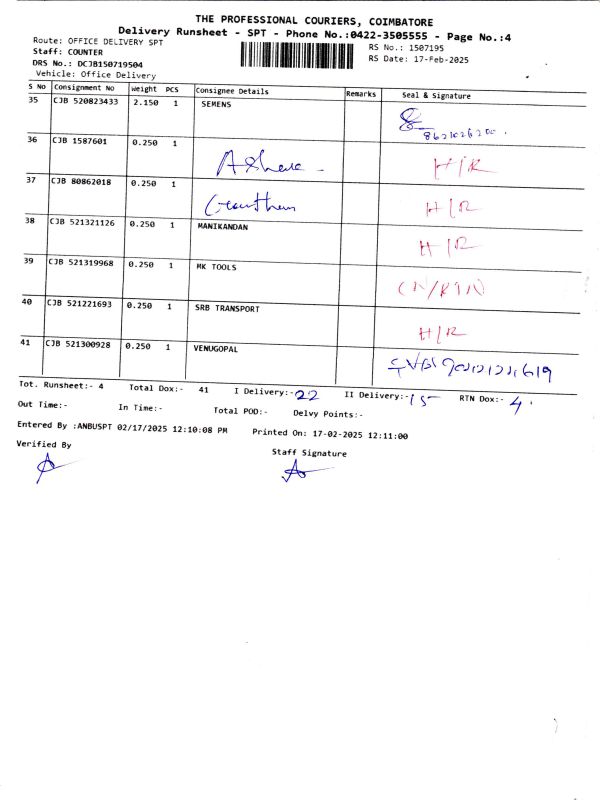 THE PROFESSIONAL COURIERS, COIMBATORE
Delivery Runsheet - SPT - Phone No.:0422-3505555 - Page No.:4
Route: OFFICE DELIVERY SPT
RS No.: 1507195
Staff: COUNTER
RS Date: 17-Feb-2025
DRS No.: DCJB150719504
Vehicle: Office Delivery
S No Consignment No Weight PCS Consignee Details Remarks Seal & Signature
35 CJB 520823433 2.150 1 SEMENS
36 CJB 1587601 0.250 1 H/R
37 CJB 80862018 0.250 1 Gowtham H/R
38 CJB 521321126 0.250 1 MANIKANDAN H/R
39 CJB 521319968 0.250 1 MK TOOLS CN/RTN
40 CJB 521221693 0.250 1 SRB TRANSPORT H/R
41 CJB 521300928 0.250 1 VENUGOPAL
Tot. Runsheet:- 4 Total Dox:- 41 I Delivery:- 22 II Delivery:- 15 RTN Dox:- 4
Out Time:- In Time:- Total POD:- Delvy Points:-
Entered By :ANBUSPT 02/17/2025 12:10:08 PM Printed On: 17-02-2025 12:11:00
Verified By
Staff Signature